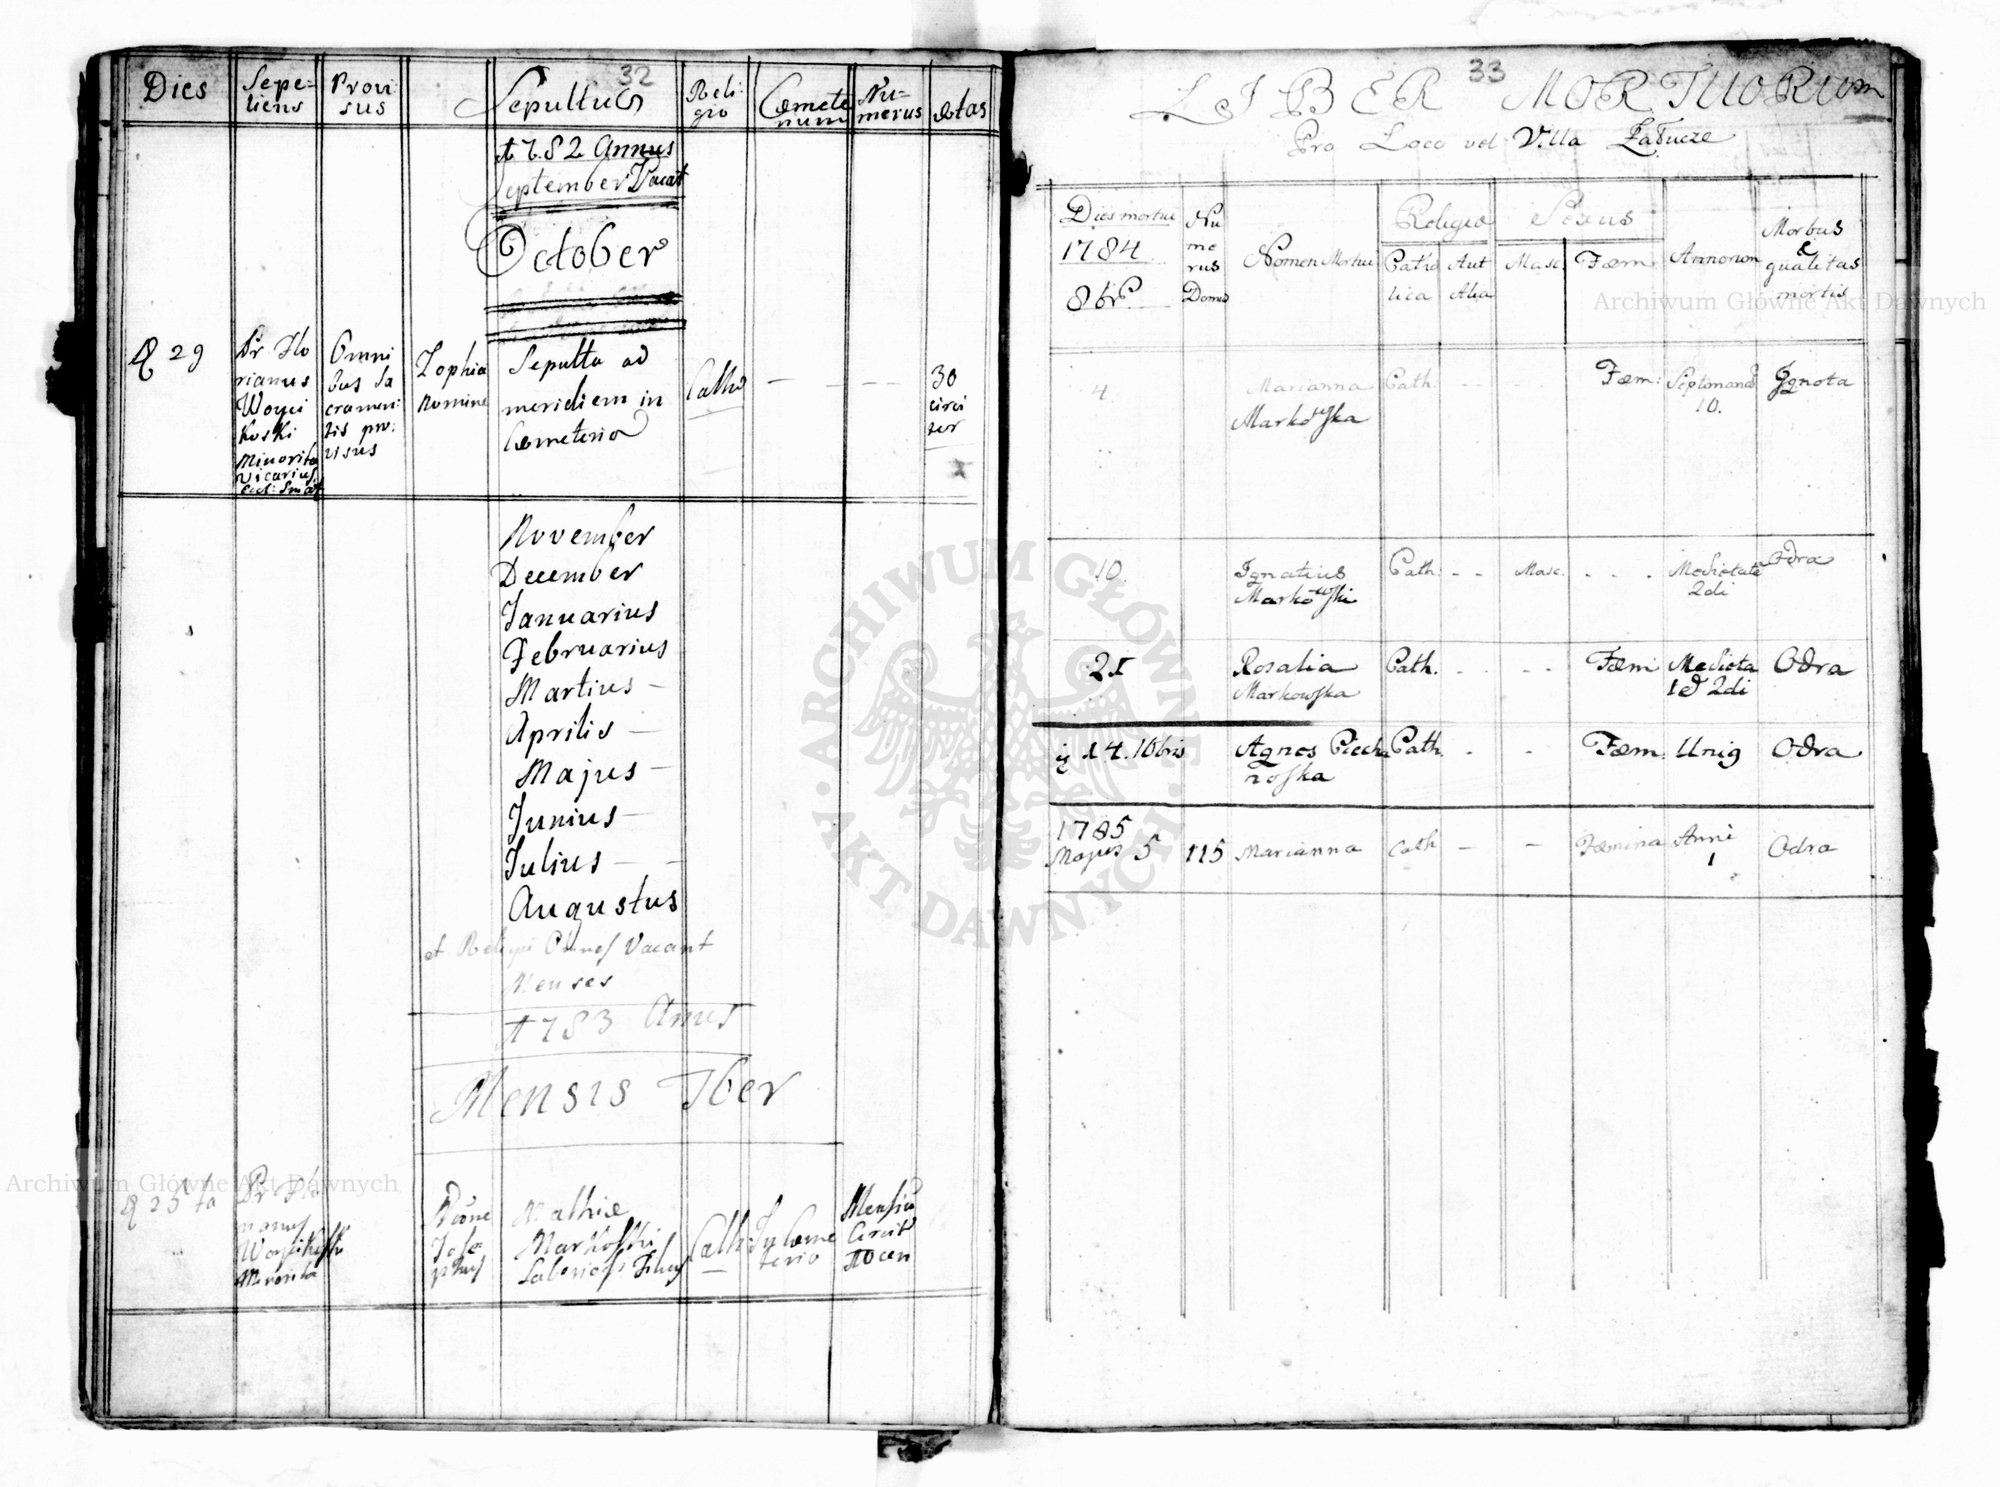 32
Dies
Sepe=
liens
Provi:
sus
Sepultus
Reli:
gio
Cæmete
rium
Nu=
merus
ætas
1782 Annus
September Vacat
October
29
Pr Flo
rianus
Woyci
koski
Minorita
vicarius
Omni
bus Sa
cramen:
tis pro:
visus
Zophia
nomine
Sepulta ad
meridiem in
Cæmeterio
Catho
30
circi
ter
November
December
Januarius
Februarius
Martius –
Aprilis –
Majus –
Junius –
Julius – –
Augustus
et Reliqui Omnes Vacant
Menses
1783 Annus
Mensis 7ber
Pr Flo
rianus
Woycikoski
Minorita
Nõne
Jose
phus
Mathiæ
Markoski
Laboriosi Filius
Cath:
In Cæme
terio
Mensiũ
Circit
33
LIBER MORTUORUM
Pro Loco vel Villa Załucze
Dies mortui
1784
8bris
Nu
me
rus
Domus
Nomen Mortui
Religio
Catho
lica
Aut
Alia
Sexus
Masc.
Fæm:
Annorum
Morbus
&
qualitas
mortis
4.
Marianna
Markowska
Cath.
Fæm:
Septimanarũ
10.
Ignota
10.
Ignatius
Markowski
Cath:
Masc.
Medietate
2di
Odra
21
Rosalia
Markowska
Cath.
Fæm
Medieta
2di
Odra
14. 10bris
Agnes Ciecha
noska
Cath.
Fæm:
Unig
Odra
1785
Majus 5
115
Marianna
Cath
Fæmina
Anni
1
Odra
Archiwum Główne Akt Dawnych
Archiwum Główne Akt Dawnych
ARCHIWUM GŁÓWNE · AKT DAWNYCH ·